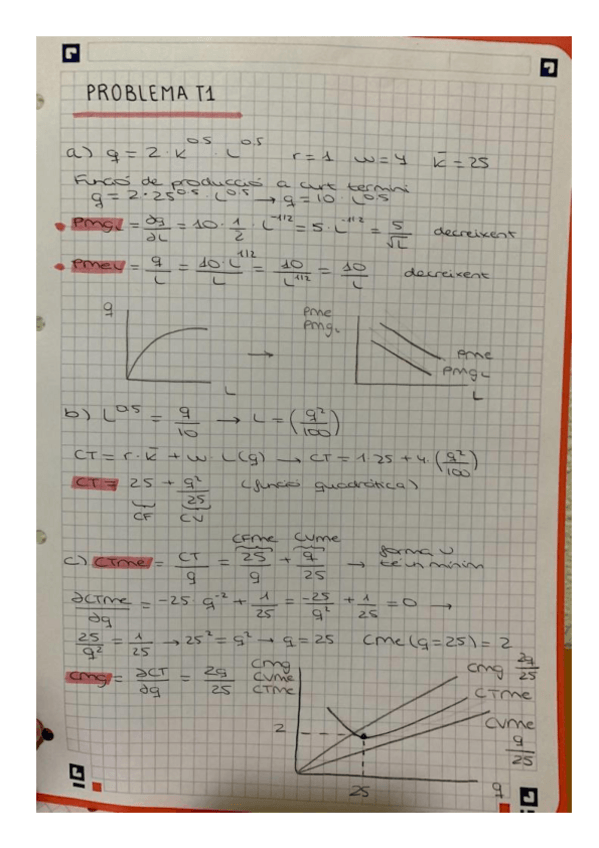 PROBLEMA T1
a) q = 2 · K^0.5 · L^0.5   r = 1   w = 4   K̄ = 25
Funció de producció a curt termini
q = 2 · 25^0.5 · L^0.5 → q = 10 · L^0.5
• PMgL = ∂q/∂L = 10 · 1/2 · L^-1/2 = 5 · L^-1/2 = 5/√L   decreixent
• PMeL = q/L = 10 · L^1/2/L = 10/L^1/2 = 10/L   decreixent
q
L
→
PMe
PMgL
PMe
PMgL
L
b) L^0.5 = q/10 → L = (q²/100)
CT = r · K̄ + w · L(q) → CT = 1 · 25 + 4 · (q²/100)
CT = 25 + q²/25   (funció quadràtica)
CF   CV
CFMe   CVMe
c) CTMe = CT/q = 25/q + q/25 → forma U
té un mínim
∂CTMe/∂q = -25 · q^-2 + 1/25 = -25/q² + 1/25 = 0 →
25/q² = 1/25 → 25² = q² → q = 25   CMe(q=25) = 2
CMg = ∂CT/∂q = 2q/25
CMg
CVMe
CTMe
CMg 2q/25
CTMe
CVMe
q/25
2
25
q